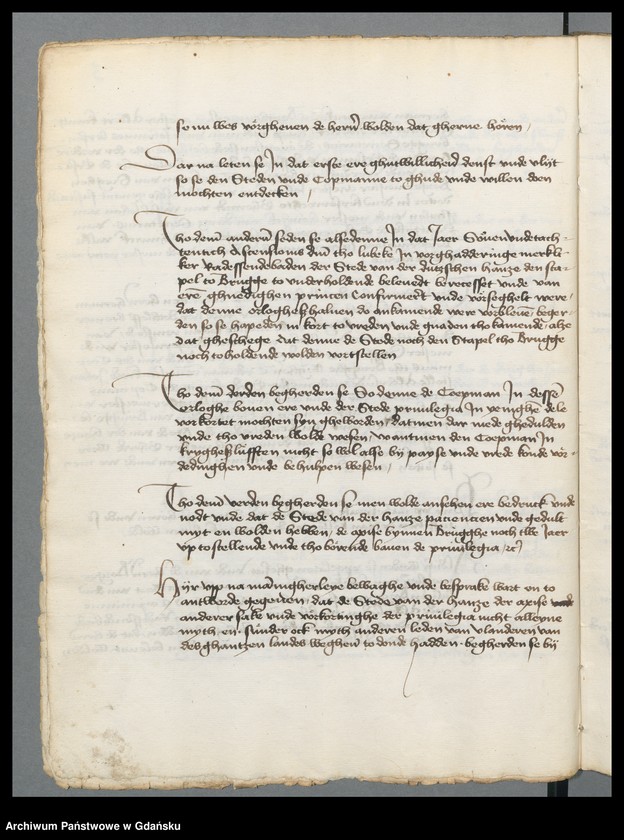 se nu wes vörghenen de hern wolden dat gherne hören /
Dar na leten se In dat erste ere ghutwillicheid denst vnde vlijt
so se den Steden vnde Copmanne to ghude vnde willen don
mochten entdecken /
Tho dem anderen seden se alsedenne In dat Jaer Söuenvndetach-
tentich Ascensionis dni tho lubeke In vorghadderinge merkli-
ker Radessendebaden der Stede van der dutzschen hanze den sta-
pel to Brugge to vnderholdende beleuedt berecesset vnde van
ere ghnedighen princen Confirmert vnde vörseghelt were /
dat denne orloghes haluen do ankamende were vorbleue / beger-
den so se hapeden in kort to vreden vnde gnaden tho kamende / alze
dat gheschege dat denne de Stede noch den Stapel tho Brugge
noch to holdende wolden vortstellen
Tho dem derden begherden se So denne de Coepman In desse
orloghe bouen ere vnde der Stede priuilegia In yenighe dele
vorkortet mochten syn gheworden / datmen dar mede ghedulden
vnde tho vreden wolde wesen / wantmen den Coepman In
kryghes lüfften nicht so wol alse bij payse vnde vrede konde vör-
dedinghen vnde behulpen wesen /
Tho dem verden begherden se men wolde ansehen ere bedruck vnde
nodt vnde dat de Stede van der hanze paciencien vnde gedult
myt en wolden hebben / de apise bynnen Brugghe noch tlk Jaer
vp to stellende vnde tho börende bauen de priuilegia / etc
Hijr vpp na mannigherleye bewaghe vnde besprake wart en to
antworde gegeuen / dat de Stede van der hanze der apise vnde
anderer sake vnde vorkortinghe der priuilegia nicht alleyne
myth en sunder ock myth anderen leden van vlanderen van
des ghantzen landes weghen to donde hadden / begherden se bij
Archiwum Państwowe w Gdańsku